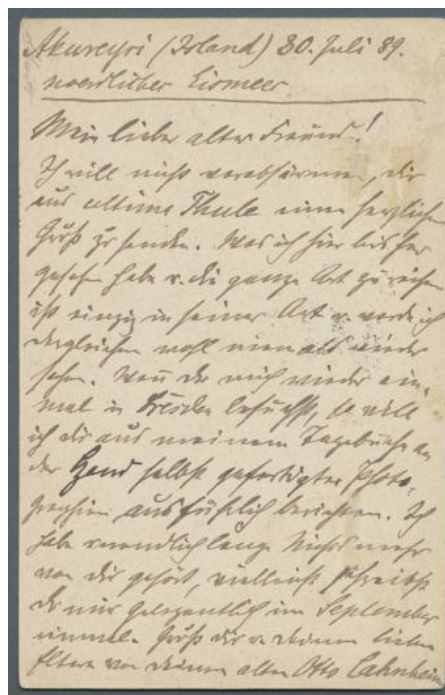 Akureyri (Island) 30. Juli 89.
noerdliches Eismeer
Mein lieber alter Freund!
Ich will nicht verabsäumen, dir
aus ultima Thule einen herzlichen
Gruß zu senden. Was ich hier bisher
gesehen habe u. die ganze Art zu reisen
ist einzig in seiner Art u. werde ich
dergleichen wohl niemals wieder
sehen. Wenn du mich wieder ein-
mal in Dresden besuchst, so will
ich dir aus meinem Tagebuche an
der Hand selbst gefertigter Photo-
graphien ausführlich berichten. Ich
habe unendlich lange Nichts mehr
von dir gehört, vielleicht schreibst
du mir gelegentlich im September
einmal. Grüß dir u. deinen lieben
Eltern von deinem alten Otto Cahnheim